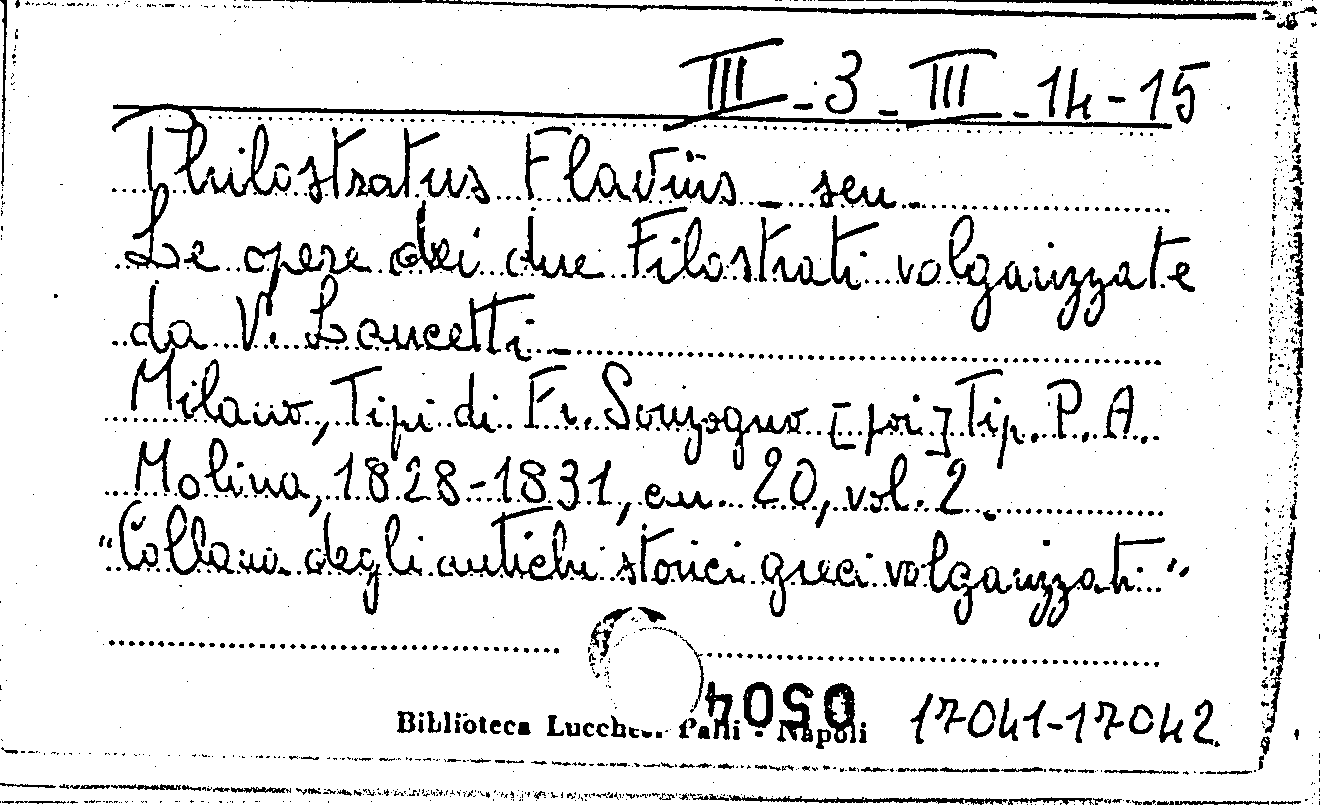 III - 3 - III - 14-15
Philostratus Flavius - sen -
Le opere dei due Filostrati volgarizzate
da V. Lancetti -
Milano, Tipi di Fr. Sonzogno [poi] Tip. P. A.
Molina, 1828-1831, cm. 20, vol. 2.
"Collana degli antichi storici greci volgarizzati"
Biblioteca Lucchesi Palli - Napoli
0504
17041-17042